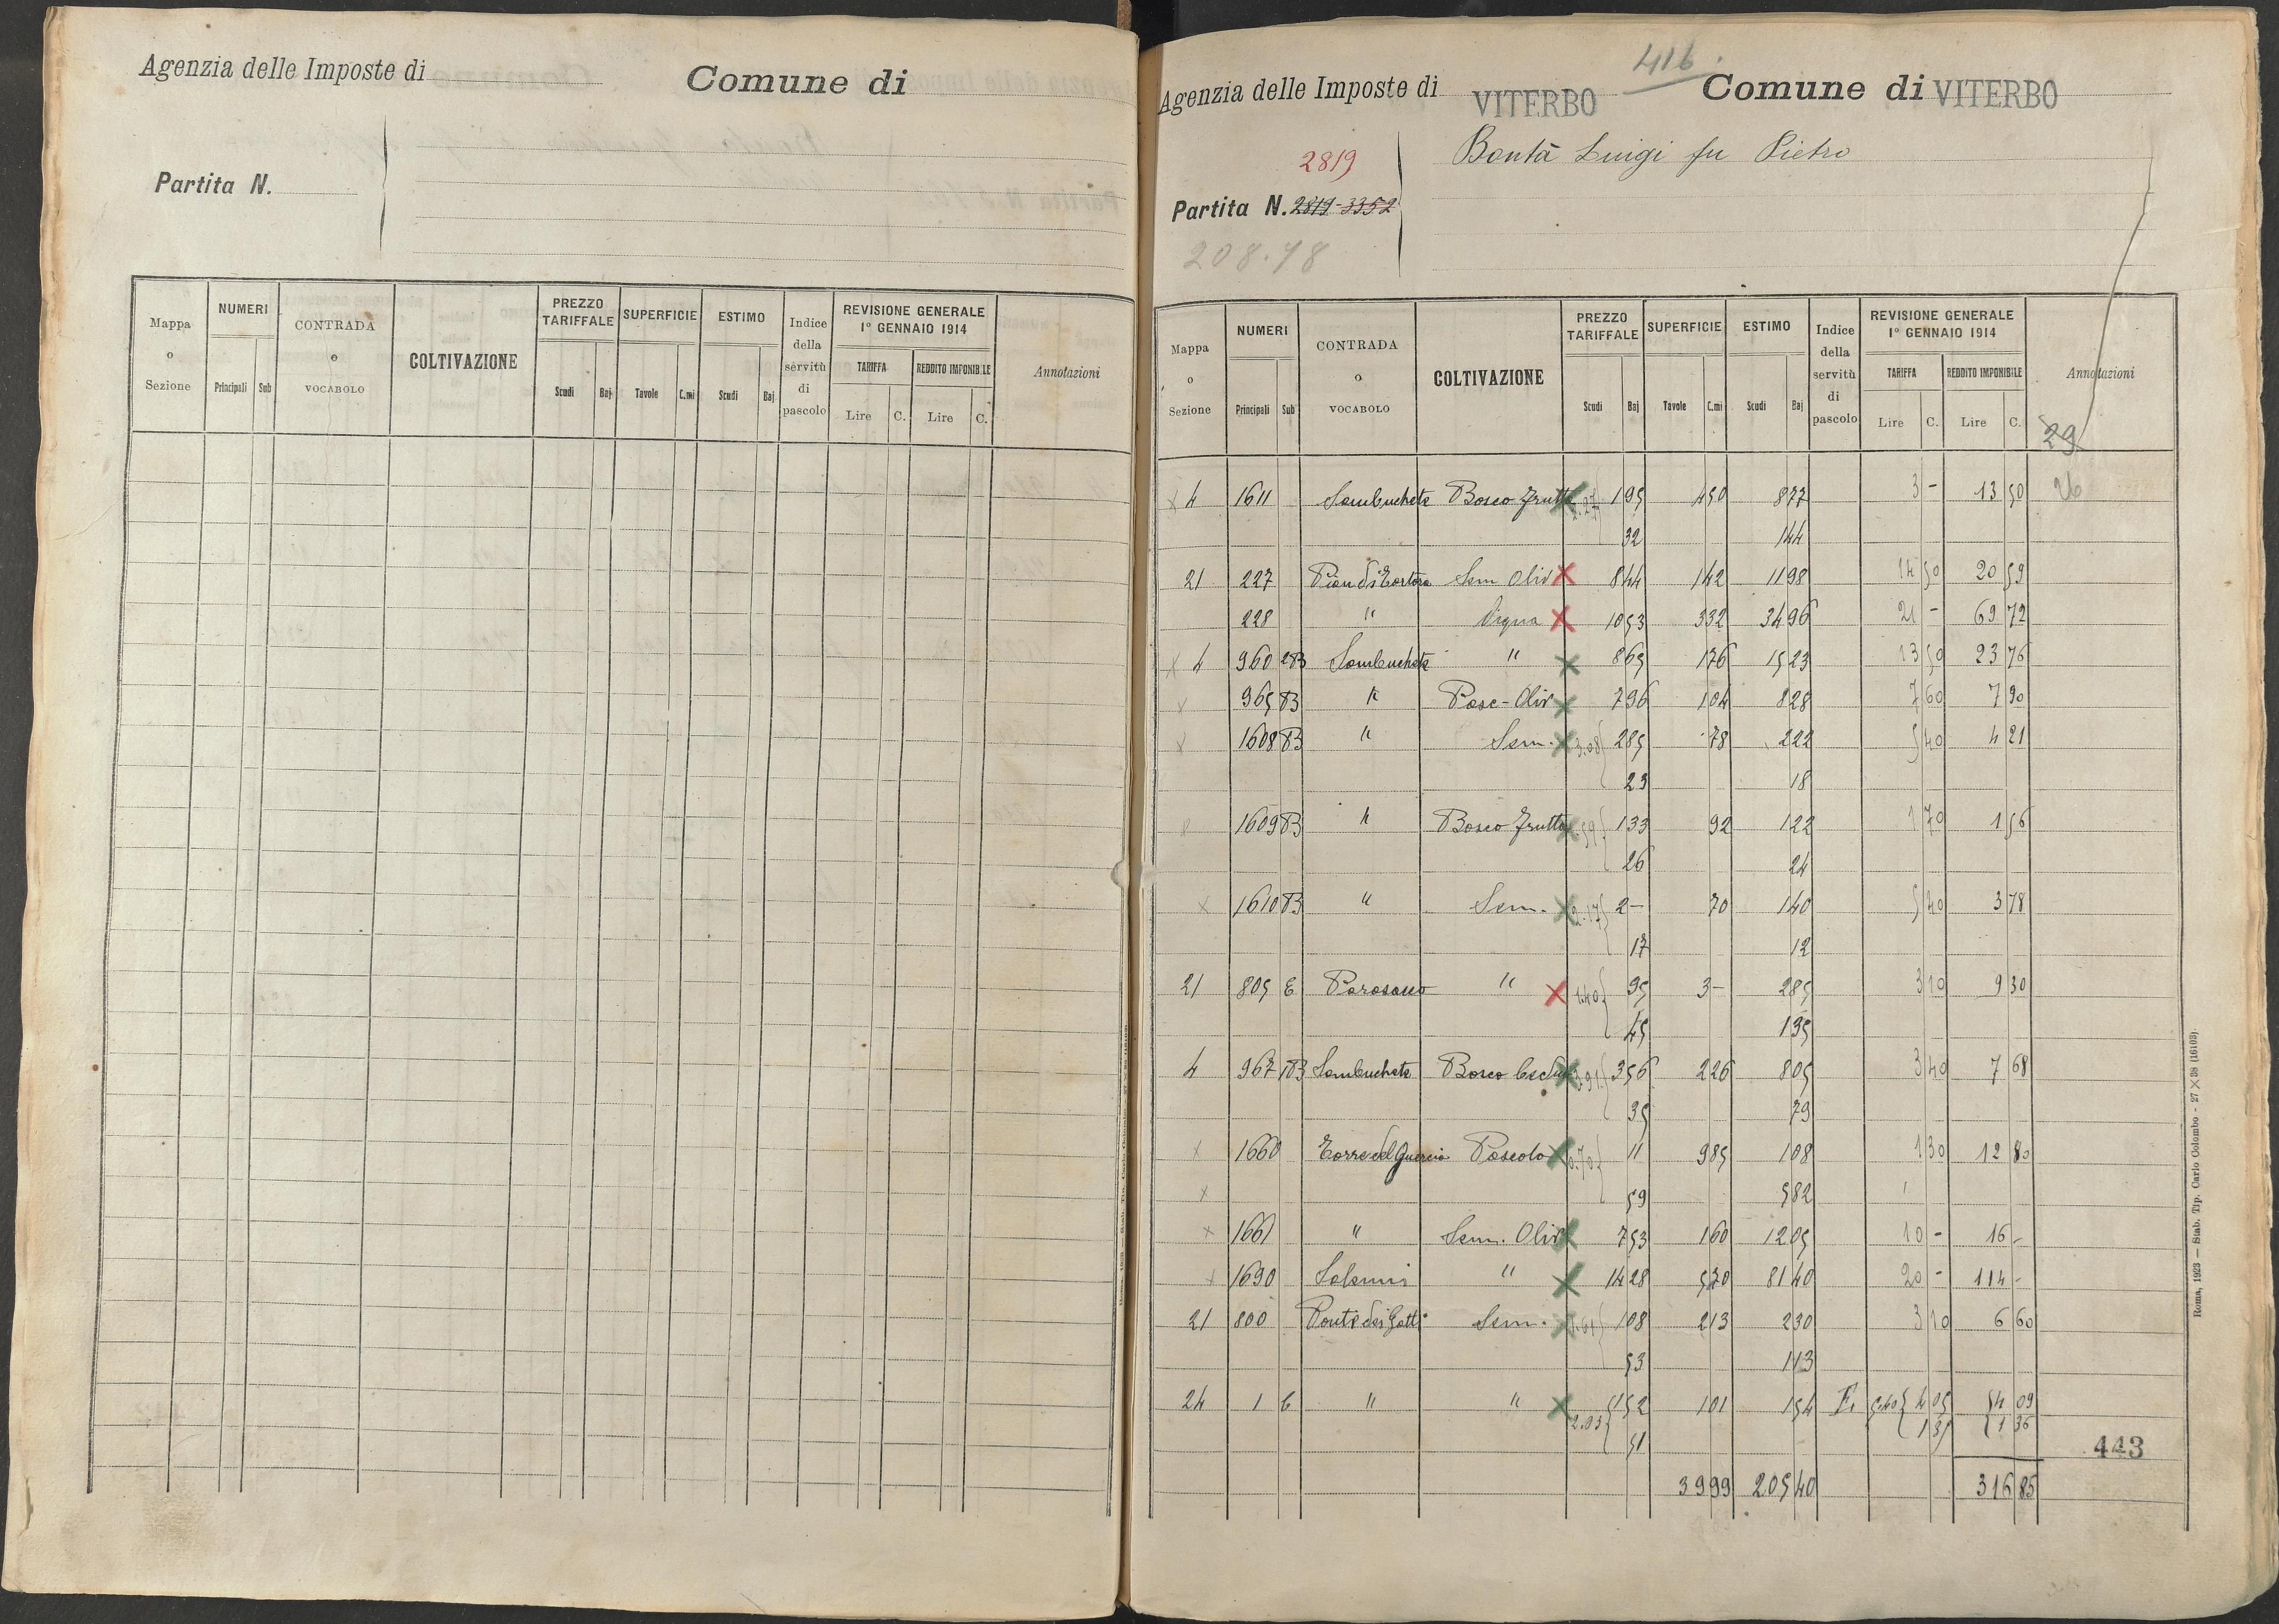 Agenzia delle Imposte di Comune di
Partita N.
Mappa o Sezione NUMERI Principali Sub CONTRADA o VOCABOLO COLTIVAZIONE PREZZO TARIFFALE Scudi Baj SUPERFICIE Tavole C.mi ESTIMO Scudi Baj Indice della servitù di pascolo REVISIONE GENERALE 1° GENNAIO 1914 TARIFFA Lire C. REDDITO IMPONIBILE Lire C. Annotazioni
416.
Agenzia delle Imposte di VITERBO Comune di VITERBO
2819 Bontà Luigi fu Pietro
Partita N. 2819-3352
208.48
Mappa o Sezione NUMERI Principali Sub CONTRADA o VOCABOLO COLTIVAZIONE PREZZO TARIFFALE Scudi Baj SUPERFICIE Tavole C.mi ESTIMO Scudi Baj Indice della servitù di pascolo REVISIONE GENERALE 1° GENNAIO 1914 TARIFFA Lire C. REDDITO IMPONIBILE Lire C. Annotazioni
29
x 4 1611 Sambucheta Bosco frutto 2.27 1 95 4 50 8 77 3 - 13 50 26
32 1 44
21 227 Sem Oliv x 8 44 1 42 11 98 14 50 20 59
228 " Vigna x 10 53 3 32 34 96 21 - 69 72
x 4 960 2B Sambucheta " x 8 65 1 76 15 23 13 50 23 76
x 965 B " Pasc-Oliv x 7 96 1 04 8 28 7 60 7 90
x 1608 B " Sem. x 3.08 2 85 78 2 22 5 40 4 21
23 18
x 1609 B " Bosco frutto x 1 33 92 1 22 1 70 1 56
26 24
x 1610 B " Sem. x 2.17 2 - 70 1 40 5 40 3 78
17 12
21 805 E " x 1.40 95 3 - 2 85 3 10 9 30
45 1 35
4 967 1B Sambucheta Bosco x 3.91 3 56 2 26 8 05 3 40 7 68
35 79
x 1660 Torre del Guercio Pascolo x 0.70 11 9 85 1 08 1 30 12 80
x 59 5 82
x 1661 " Sem. Oliv x 7 53 1 60 12 05 10 - 16 -
x 1690 " x 14 28 5 70 81 40 20 - 114 -
21 800 Sem. x 1.61 1 08 2 13 2 30 3 10 6 60
53 1 13
24 1 " " x 2.03 1 52 1 01 1 54 5.40 4 05 4 09
51 1 35 1 36
443
39 99 205 40 316 85
Roma, 1923 — Stab. Tip. Carlo Colombo - 27 X 38 (16103)